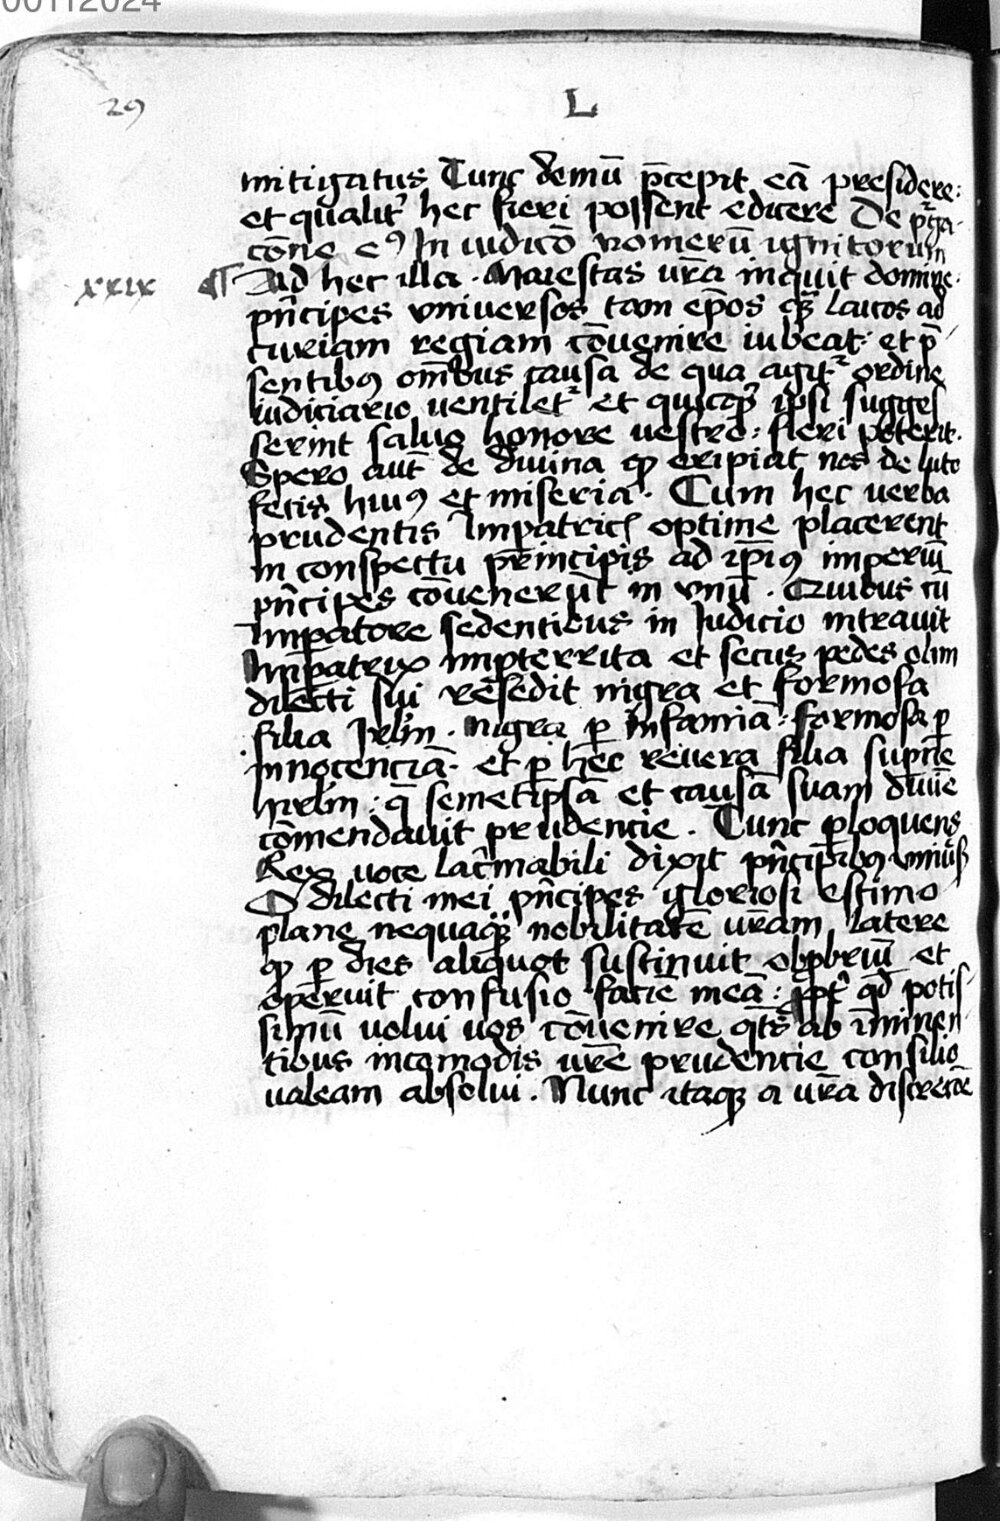 00112024
29
L
mitigatus Tunc demū p̄cepit eā presidere:
et qualit᷑ hec fieri possent edicere De p᷑ga-
cōne eꝰ In iudicō vomerū ignitorum
xxix ¶ Ad hec illa . Maiestas vr̄a inquit domine.
pn̄cipes vniversos tam ep̄os qꝫ laicos ad
curiam regiam cōvenire iubeat: et p̄
sentibꝰ om̄bus causa de qua agit᷑ ordine
iudiciario ventilet᷑ et quicqꝫ ipsi sugges
serint salvo honore vestro: fieri poterit.
Spero aut̄ de divina ꝙ eripiat nos de luto
fecis huiꝰ et miseria. Cum hec verba
prudentis Impatric̄ optime placerent
in conspectu principis ad ip̄iꝰ imperiū
pn̄cipes cōvenerūt in vnū . Quibus cū
Imp̄atore sedentibus in Iudicio intravit
Imp̄atrix imperterrita et secus pedes olim
dilecti sui resedit nigra et formosa
filia Jrlm̄ . nigra ꝑ infamiā: formosa ꝑ
innocenciā. et ꝑ hec revera filia sup̄ne
hirlm̄: q̄ semetip̄sā et causā suam divīe
cōmendavit prudencie . Tunc ꝓloquens
Rex voce lac̄mabili dixit pn̄cipibꝰ vniūs̄
O dilecti mei pn̄cipes gloriosi estimo
plane nequaqꝫ nobilitatē vr̄am latere
ꝙ ꝑ dies aliquot sustinuit obꝓbriū et
operuit confusio facie meā: ꝓpt᷑ qd̄ potis
simū volui vos cōvenire qt̄s ab īminen
tibus incomodis vr̄e prudencie consilio
valeam absolvi . Nunc itaqꝫ a vr̄a discrecōe